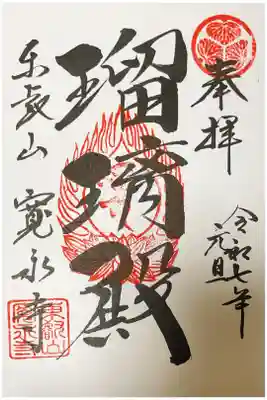 奉拝
令和七年
元旦
瑠璃殿
东叡山 寛永寺
東叡山
寛永寺